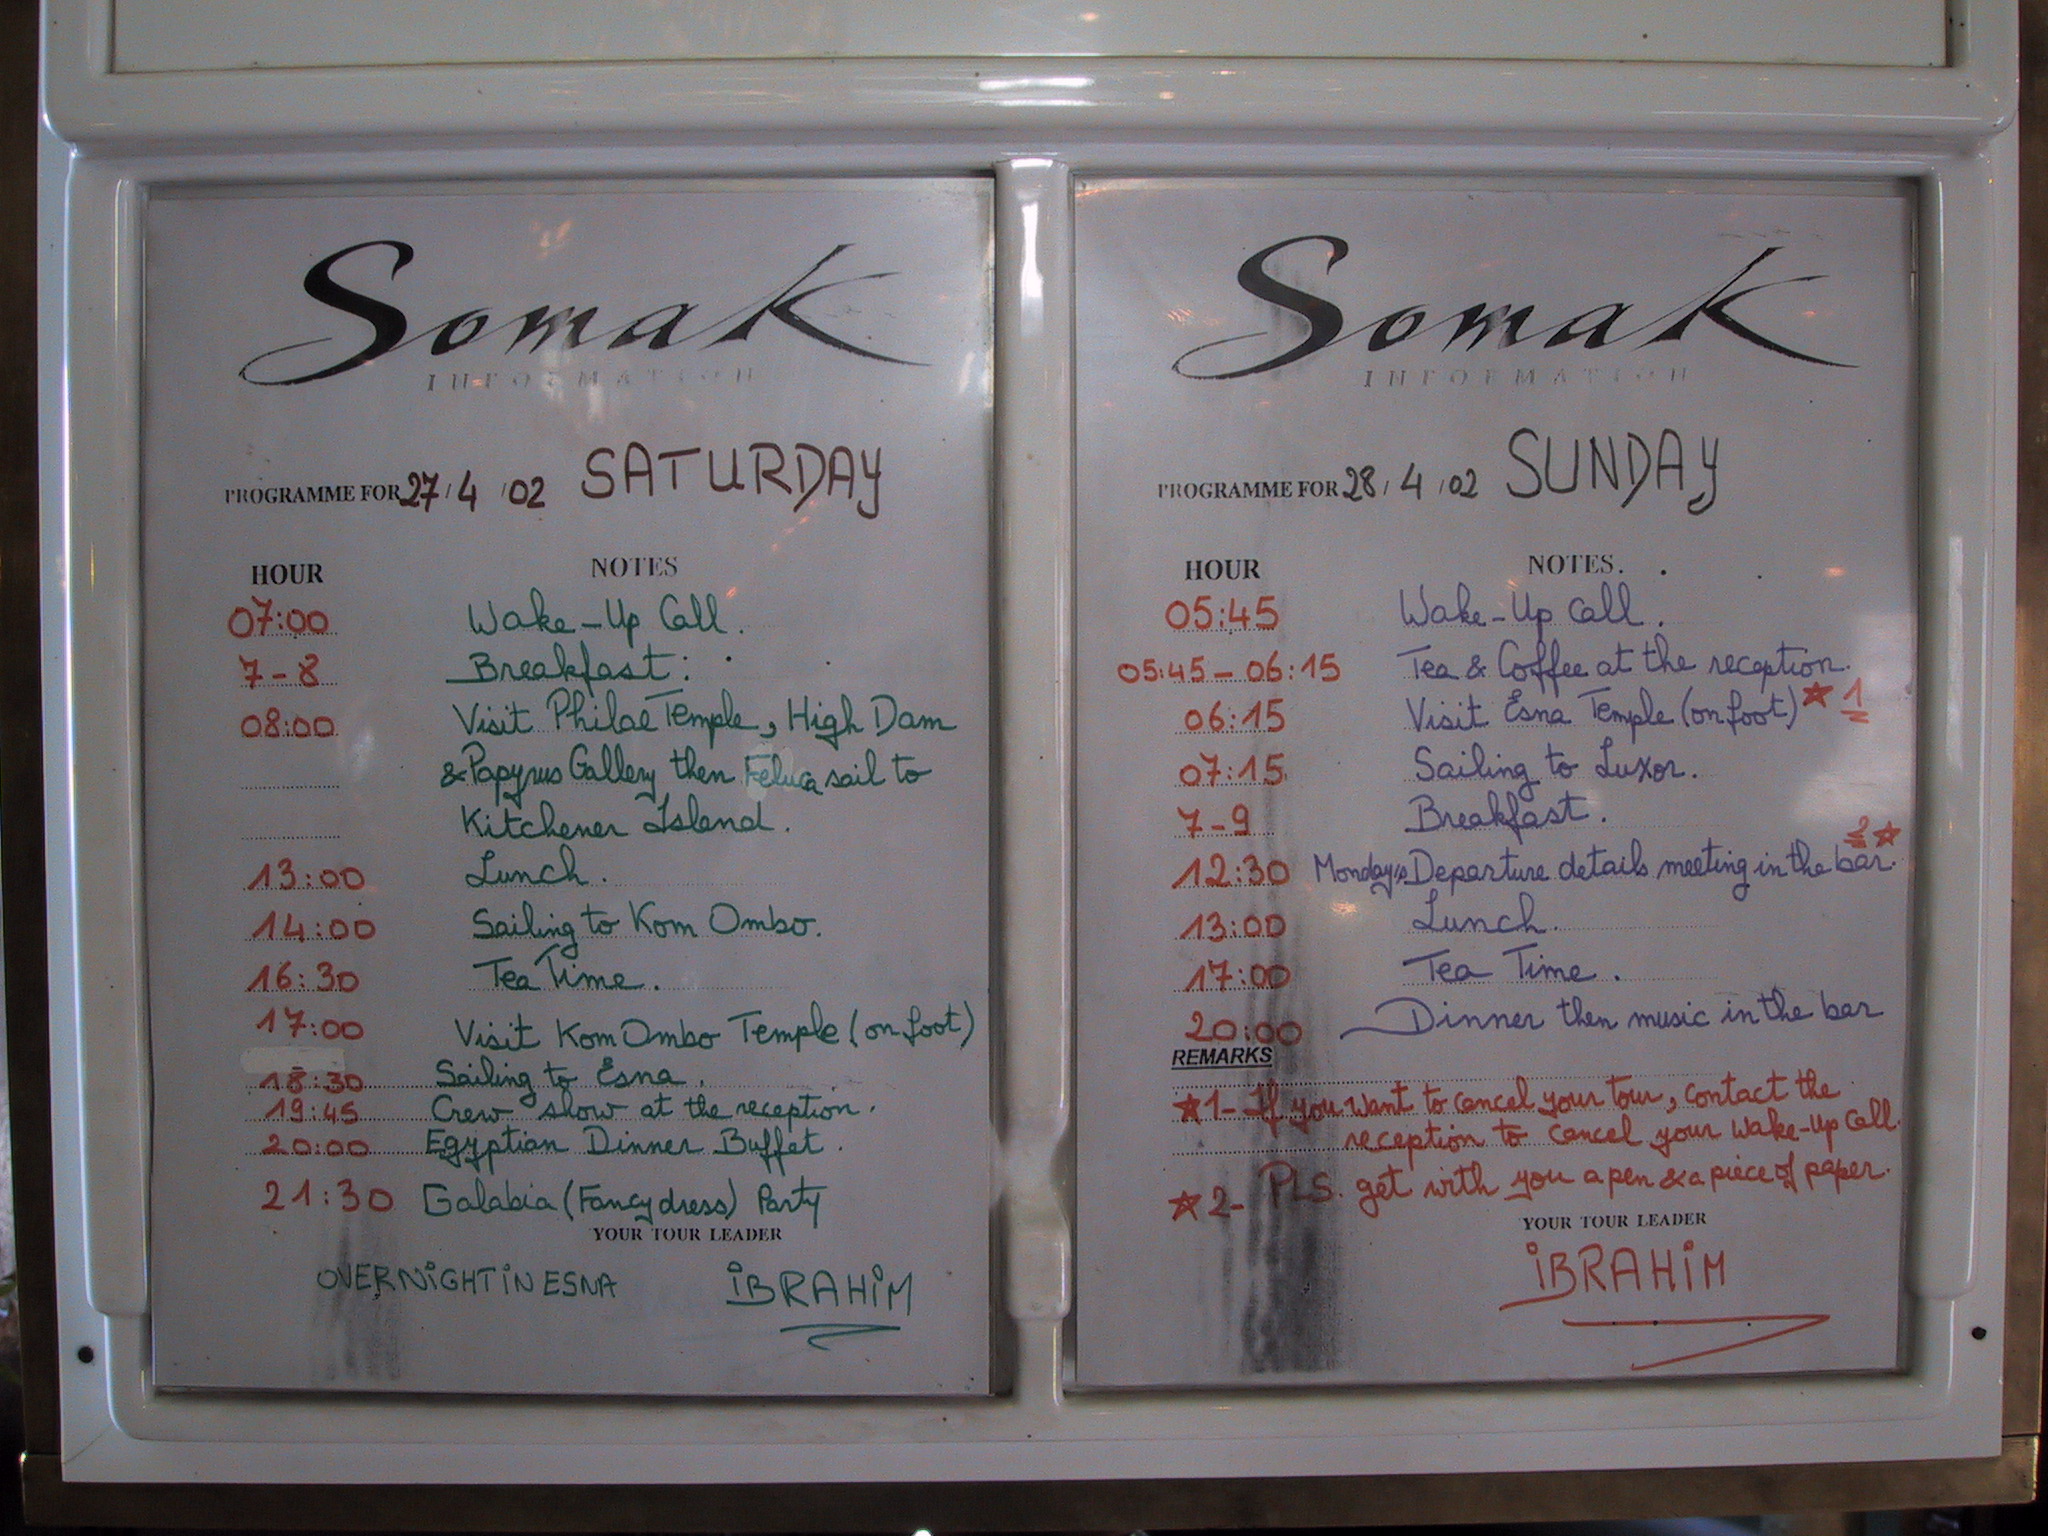 Somak
INFORMATION
PROGRAMME FOR 27/4/02 SATURDAY
HOUR NOTES
07:00 Wake-Up Call.
7-8 Breakfast:
08:00 Visit Philae Temple, High Dam
& Papyrus Gallery then Feluca sail to
Kitchener Island.
13:00 Lunch.
14:00 Sailing to Kom Ombo.
16:30 Tea Time.
17:00 Visit Kom Ombo Temple (on foot)
18:30 Sailing to Esna.
19:45 Crew show at the reception.
20:00 Egyptian Dinner Buffet.
21:30 Galabia (Fancy dress) Party
YOUR TOUR LEADER
OVERNIGHT IN ESNA IBRAHIM
Somak
INFORMATION
PROGRAMME FOR 28/4/02 SUNDAY
HOUR NOTES.
05:45 Wake-Up Call.
05:45 - 06:15 Tea & Coffee at the reception.
06:15 Visit Esna Temple (on foot) ★ 1
07:15 Sailing to Luxor.
7-9 Breakfast.
12:30 Monday's Departure details meeting in the bar. 2 ★
13:00 Lunch.
17:00 Tea Time.
20:00 Dinner then music in the bar
REMARKS
★1- If you want to cancel your tour, contact the
reception to cancel your Wake-Up Call.
★2- PLS. get with you a pen & a piece of paper.
YOUR TOUR LEADER
IBRAHIM